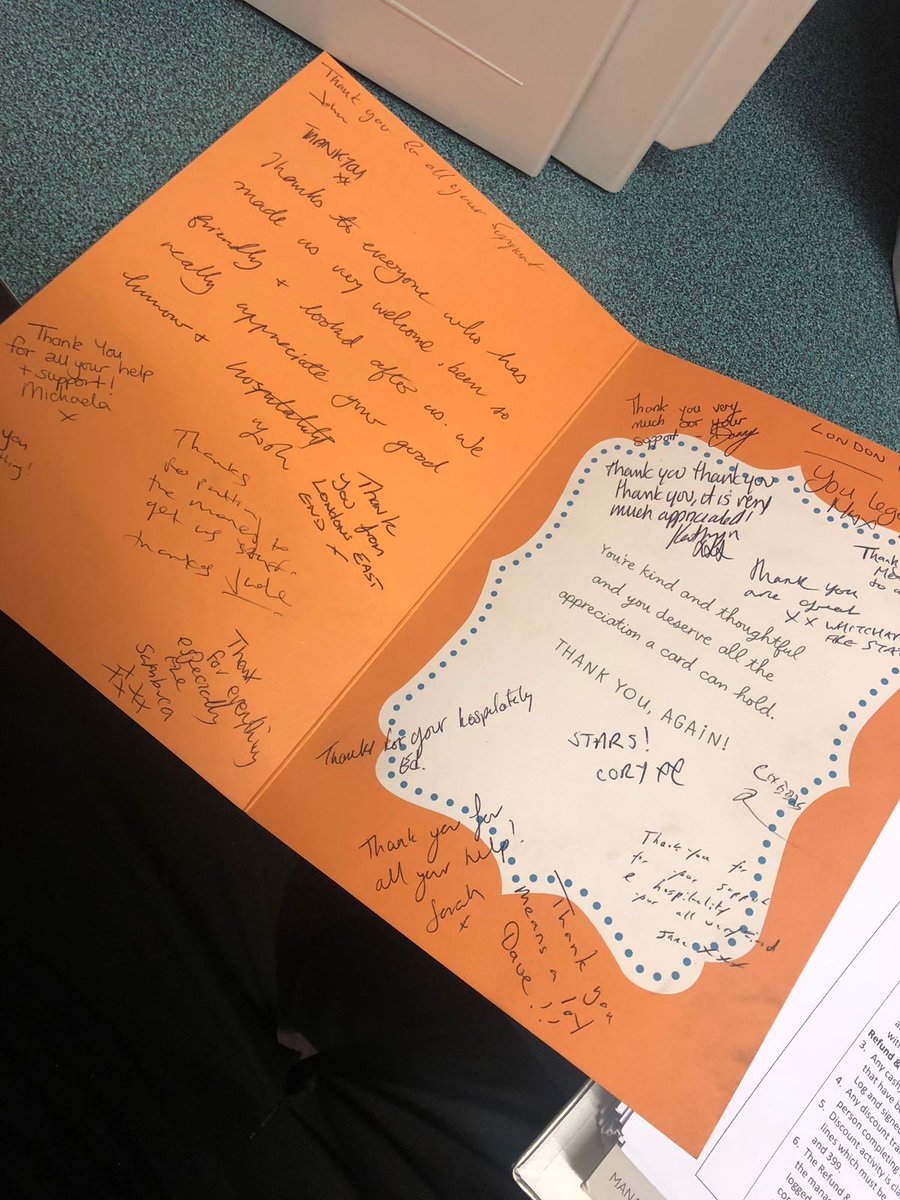 Thank you for all your support
John
THANKYOU
xx
Thanks to everyone who has
made us very welcome, been so
friendly + looked after us. We
really appreciate your good
humour + hospitality
Thank You
for all your help
+ support!
Michaela
x
you
Thanks
for putting
the money to
get us
thanks Jude
Thank
you from
London EAST
END
x
Thank
for everything
especially
the
Sambuca
xxxx
Thank you very
much for your
support - Danny
LONDON
You lege
Max
Thank you thank you
thank you, it is very
much appreciated!
Kathryn
xxx
Thank
Me
to a
Thank you
are great
xx WHITCHA
FIRE STA
You're kind and thoughtful
and you deserve all the
appreciation a card can hold.
THANK YOU, AGAIN!
STARS!
CORY
Thanks for your hospitality
Ed.
Thank you for
all your help!
Sarah
x
Thank you
means a lot
Dave!!
Thank-you for
your support
& hospitality
Jane xxx
with
Refund &
3. Any cash
that have b
Log and signed
4. Any discount tra
person completing
5. Discount activity is cl
lines which must be
and 399
6. The Refund &
the mana
logged
co
MANA